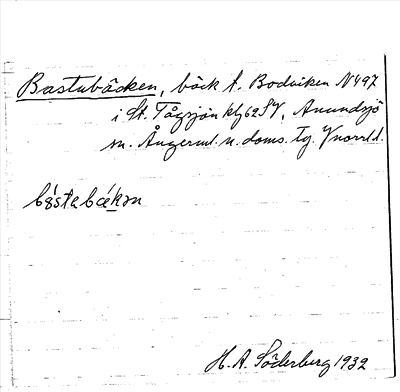 Bastubäcken, bäck t. Bodviken N497
i St. Tågsjön kbl 62 SV, Anundsjö
sn. Ångerml. n. doms. Tg. Vnorrl.l.
bástabǽkən
H. A. Söderberg 1932